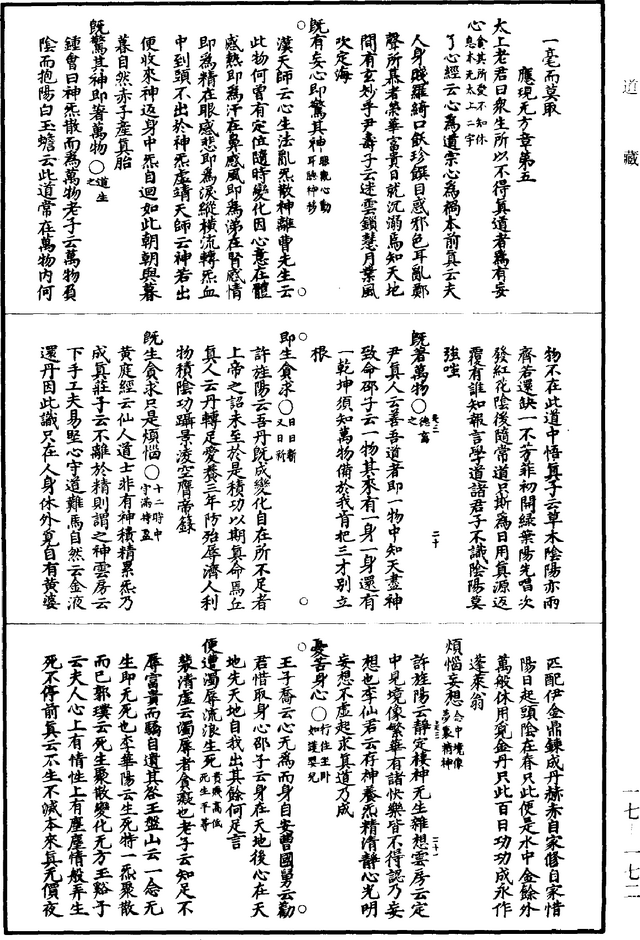 道藏
一毫而莫取
應現无方章第五
太上老君曰衆生所以不得真道者為有妄
心貪其所愛不知休息本元太上二字
了心經云心為道宗心為禍本前真云夫
人身賤羅綺口飫珍饌目惑邪色耳亂鄭
聲所慕者榮華富貴日就沉溺焉知天地
間有玄妙乎尹壽子云迷雲鎖慧月葉風
吹定海
既有妄心即驚其神眼觀心動耳聽神移
漢天師云心生法亂炁散神離曹先生云
此物何曾有定位隨時變化因心意在體
感熱即為汗在鼻感風即為涕在腎感情
即為精在眼感悲即為淚縱橫流轉炁血
中到頭不出於神炁虛靖天師云神若出
便收來神返身中炁自迴如此朝朝與暮
暮自然赤子產真胎
既驚其神即著萬物〇道生之
鍾會曰神炁散而為萬物老子云萬物負
陰而抱陽白玉蟾云此道常在萬物內何
物不在此道中悟真子云草木陰陽亦兩
齊若還缺一不芳菲初開綠葉陽先唱次
發紅花陰後隨常道只斯為日用真源返
覆有誰知報言學道諸君子不識陰陽莫
強嗤
既著萬物〇德富之
尹真人云善吾道者即一物中知天盡神
致命邵子云一物其來有一身一身還有
一乾坤須知萬物備於我肯把三才別立
根
即生貪求〇日日新又日新
許旌陽云吾丹既成變化自在所不足者
上帝之詔未至於是積功以期真命馬丘
真人云丹轉足愛養三年防殆辱濟人利
物積陰功躡景凌空膺帝錄
既生貪求只是煩惱〇十二時中守滿持盈
黃庭經云仙人道士非有神積精累炁乃
成真莊子云不離於精則謂之神雲房云
下手工夫易堅心守道難馬自然云金液
還丹因此識只在人身休外覓自有黃婆
匹配伊金鼎鍊成丹赫赤自家修自家惜
陽日起頭陰在春只此便是水中金餘外
萬般休用覓金丹只此百日功功成永作
蓬萊翁
煩惱妄想念中境像
許旌陽云靜定棲神无生雜想雲房云定
中見境像繁華有諸快樂皆不得認乃妄
想也李仙君云存神養炁精清靜心光明
妄想不虛起求真道乃成
憂苦身心〇行住坐臥如道嬰兒
王子喬云心无為而身自安曹國舅云勸
君惜取身心邵子云身在天地後心在天
地先天地自我出其餘何足言
便遭濁辱流浪生死貴賤高低死生平等
裴清虛云濁辱者貪癡也老子云知足不
辱富貴而驕自遺其咎王盤山云一念无
生即无死也李華陽云生死特一炁聚散
而已郭璞云死生聚散變化无方王谿子
云夫人心上有情性上有塵塵情般弄生
死不停前真云不生不滅本來真无價夜
一七—一七二